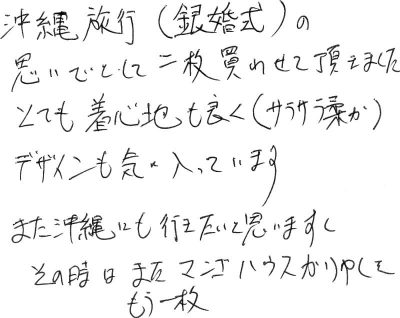 沖縄旅行(銀婚式)の
思いでとして二枚買わせて頂きました
とても着心地も良く(サラサラ柔か)
デザインも気に入っています
また沖縄にも行きたいと思いますし
その時はまたマンゴハウスかりゆしを
もう一枚